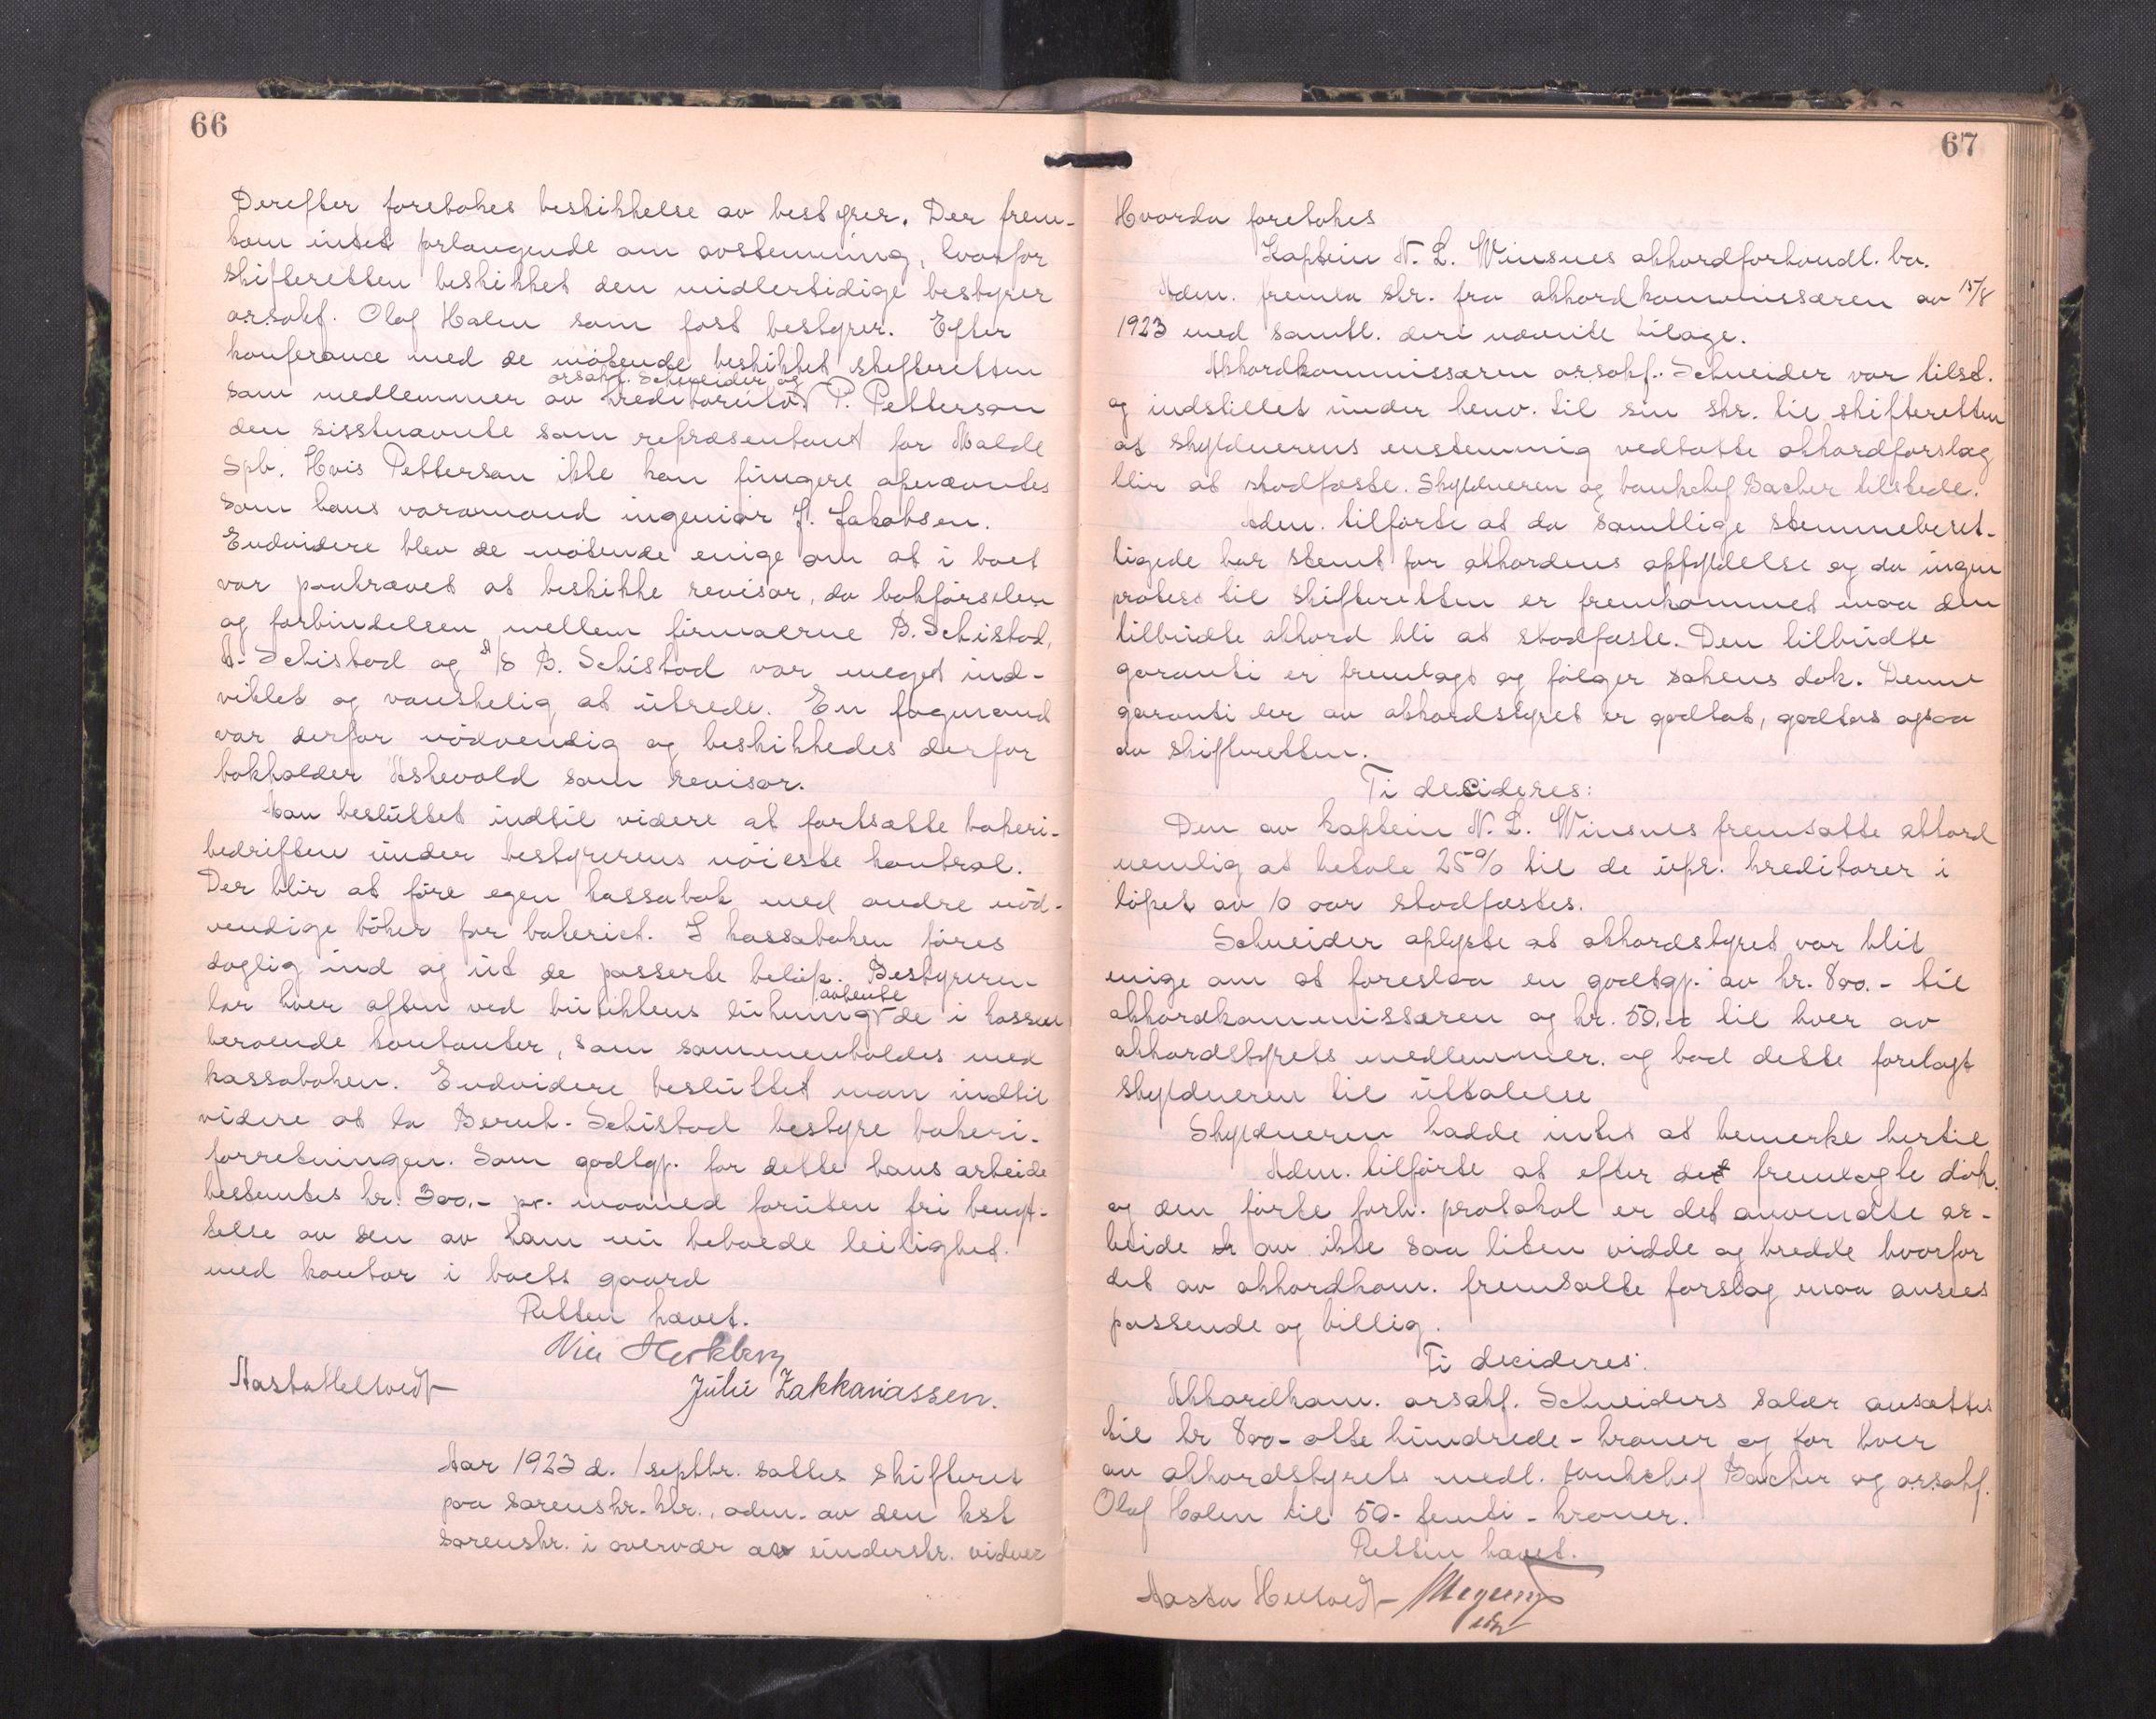 66
Derefter foretokes beskikkelse av bestyrer. Der frem-
kom intet forlangende om avstemning, hvorfor
skifteretten beskikket den midlertidige bestyrer
o.r.sakf. Olaf Halen som fast bestyrer. Efter
konferance med de møtende beskikket skifteretten
orsakf. Schneider og
som medlemmer av kreditorutv. P. Petterson
den sisstnævnte som repræsentant for Molde
Spb. Hvis Petterson ikke kan fungere opnævntes
som hans varamand ingeniør J. Jakobsen.
Endvidere blev de møtende enige om at i boet
var paakrævet at beskikke revisor, da bokførselen
og forbindelsen mellem firmaerne B. Schistad,
A. Schistad og A/S B. Schistad var meget ind-
viklet og vanskelig at utrede. En fagmand
var derfor nødvendig og beskikkedes derfor
bokholder Askevold som revisor.
Man besluttet indtil videre at fortsætte bakeri-
bedriften under bestyrerens nøieste kontrol.
Der blir at føre egen kassabok med andre nød-
vendige bøker for bakeriet. I kassaboken føres
daglig ind og ut de passerte beløp. Bestyreren
avhente
lar hver aften ved butikkens lukning de i kassen
beroende kontanter, som sammenholdes med
kassaboken. Endvidere besluttet man indtil
videre at la Bernh. Schistad bestyre bakeri-
forretningen. Som godtgj. for dette hans arbeide
bestemtes kr. 300.- pr. maaned foruten fri benyt-
telse av den av ham nu beboede leilighet
med kontor i boets gaard
Retten hævet.
Aasta Heltvedt
Julie Zakkariassen.
Aar 1923 d. 1 septbr. sattes skifteret
paa sorenskr.ktr., adm. av den kst
sorenskr. i overvær av underskr. vidner
67
Hvorda foretokes
Kaptein N. L. Winsnes akkordforhandl. bo.
Adm. fremla skr. fra akkordkommissæren av 15/8
1923 med samtl. deri nævnte bilage.
Akkordkommissæren o.r.sakf. Schneider var tilst.
og indstillet under henv. til sin skr. til skifteretten
at skyldnerens enstemmig vedtatte akkordforslag
blir at stadfæste. Skyldneren og bankchef Bacher tilstede.
Adm. tilførte at da samtlige stemmeberet-
tigede har stemt for akkordens opfyldelse og da ingen
protest til skifteretten er fremkommet maa den
tilbudte akkord bli at stadfæste. Den tilbudte
garanti er fremlagt og følger sakens dok. Denne
garanti der av akkordstyret er godtat, godtas ogsaa
av skifteretten.
Ti decideres:
Den av kaptein N. L. Winsnes fremsatte akkord
nemlig at betale 25% til de upr. kreditorer i
løpet av 10 aar stadfæstes.
Schneider oplyste at akkordstyret var blit
enige om at foreslaa en godtgj. av kr. 800.- til
akkordkommissæren og kr. 50.- til hver av
akkordstyrets medlemmer. og bad dette forelagt
skyldneren til uttalelse
Skyldneren hadde intet at bemerke hertil
Adm. tilførte at efter det fremlagte dok.
og den førte forh. protokol er det anvendte ar-
beide av ikke saa liten vidde og bredde hvorfor
det av akkordkom. fremsatte forslag maa ansees
passende og billig.
Ti decideres:
Akkordkom. orsakf. Schneiders salær ansættes
til kr 800- otte hundrede - kroner og for hver
av akkordstyrets medl. bankchef Bacher og o.r.sakf.
Olaf Halen til 50- femti - kroner.
Retten hævet.
Aasta Heltvedt